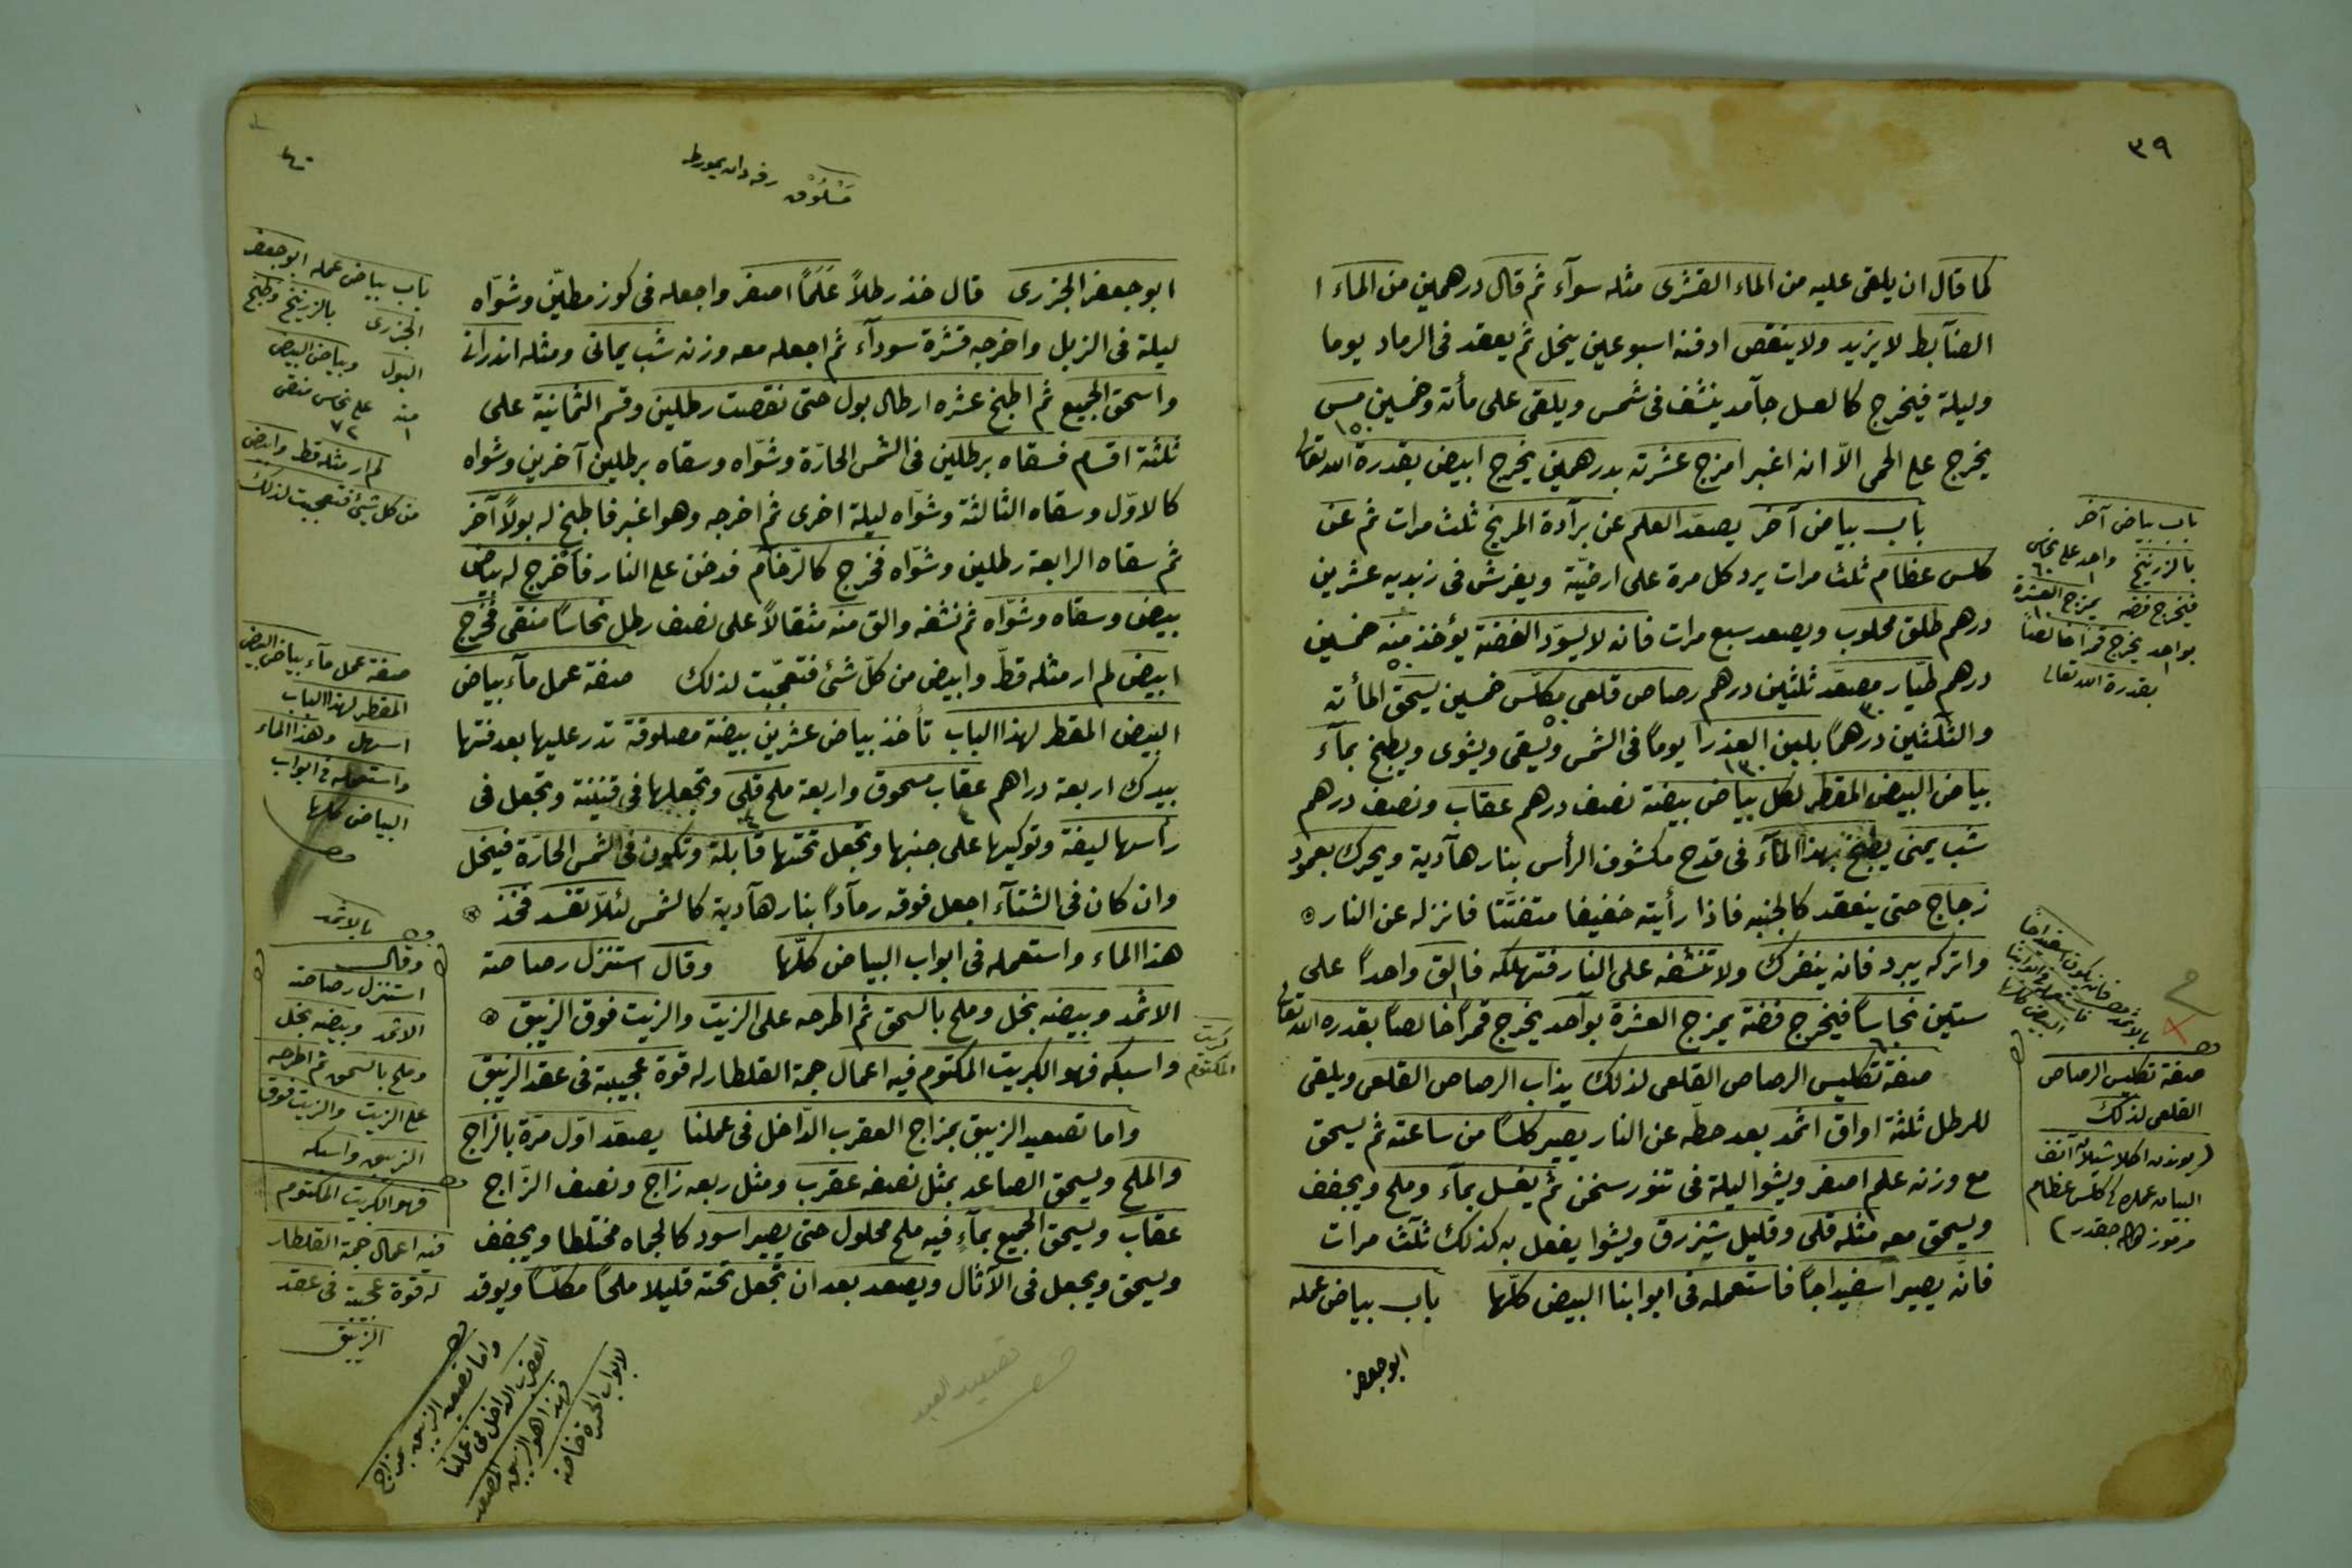 ٣٩
كما قال ان يلقى عليه من الماء القشرى مثله سوآء ثم قال درهمين من الماء
الضآبط لا يزيد ولا ينقص ادفنه اسبوعين ينحل ثم يعقد فى الرماد يوما
وليلة فيخرج كالعسل جآمد ينشف فى شمس ويلقى على مأته وخمسين مس
١٥٠
يخرج على الحمى الاّ انه اغبر امزج عشرته بدرهمين يخرج ابيض بقدرة الله تعالى
باب بياض آخر يصعّد العلم عن برآدة المريخ ثلث مرات ثم عن
كلس عظام ثلث مرات يرد كل مرة على ارضيّة ويفرش فى زبديه عشرين
درهم طلق محلوب ويصعد سبع مرات فانه لا يسوّد الفضة يؤخذ منه خمسين
درهم طيّار مصعّد ثلثين درهم رصاص قلعى مكلّس خمسين يسحق المأته
والثلثين درهماً بلبن العذرا يوماً فى الشمس ويسقى ويشوى ويطبخ بمآء
بياض البيض المقطر لكل بياض بيضة نصف درهم عقاب ونصف درهم
شب يمنى يطبخ بهذا المآء فى قدح مكشوف الرأس بنار هآدية ويحرك بعمود
زجاج حتى ينعقد كالجنبه فاذا رأيته خفيفا متفتّتا فانزله عن النار
واتركه يبرد فانه ينفرك ولا تنشفه على النار فتهلكه فالق واحداً على
ستين نحاساً فيخرج فضة يمزج العشرة بوآحد يخرج قمراً خالصاً بقدره الله تعالى
صفة تكليس الرصاص القلعى لذلك يذاب الرصاص القلعى ويلقى
للرطل ثلثة اواق اثمد بعد حطّه عن النار يصير كلساً من ساعته ثم يسحق
مع وزنه علم اصفر ويشوا ليلة فى تنور سخن ثم يغسل بمآء وملح ويجفف
ويسحق معه مثله قلى وقليل شيزرق ويشوا يفعل به كذلك ثلث مرات
فانّه يصير اسفيداجاً فاستعمله فى ابوابنا البيض كلّها باب بياض عمله
ابو جعفر
باب بياض آخر
بالزرنيخ واحد على نحاس ٦٠
فيخرج فضه يمزج العشرة
بواحد يخرج قمراً خالصاً
بقدرة الله تعالى
صفة تكليس الرصاص
القلعى لذلك
٤٠
مَسْلُوق
ابو جعفر الجزرى قال خذ رطلاً عَلَمًا اصفر واجعله فى كوز مطيّن وشوّاه
ليلة فى الزبل واخرجه قشرة سودآء ثم اجعله معه وزنه شب يمانى ومثله اندرانى
واسحق الجميع ثم اطبخ عشره ارطال بول حتى نقصت رطلين وقسم الثمانية على
ثلثة اقسام فسقاه برطلين فى الشمس الحارّة وشوّاه وسقاه برطلين آخرين وشواه
كالاوّل وسقاه الثالثة وشوّاه ليلة اخرى ثم اخرجه وهو اغبر فاطبخ له بولاً آخر
ثم سقاه الرابعة رطلين وشوّاه فخرج كالرّخآم فدخن على النار فأخرج له بياض
بيض وسقاه وشوّاه ثم نشفه والق منه مثقالاً على نصف رطل نحاساً منقى فخرج
ابيض لم ار مثله قطّ وابيض من كلّ شئ فتعجّبت لذلك صفة عمل مآء بياض
البيض المقطر لهذا الباب تأخذ بياض عشرين بيضة مصلوقة تدر عليها بعد فتها
بيدك اربعة دراهم عقاب مسحوق واربعة ملح قلى وتجعلها فى قنينة وتجعل فى
رأسها ليفة وتوكيها على جنبها وتجعل تحتها قابلة وتكون فى الشمس الحارّة فينحل
وان كان فى الشتآء اجعل فوقه رمآداً بنار هآدية كالشمس لئلاّ تفسد فخذ
هذا الماء واستعمله فى ابواب البياض كلّها وقال استنزل رصاصة
الاثمد وبيضه بخل وملح بالسحق ثم اطرحه على الزيت والزيت فوق الزيبق
واسبكه فهو الكبريت المكتوم فيه اعمال جمة القلطار له قوة عجيبة فى عقد الزيبق
واما تصعيد الزيبق بمزاج العقرب الدّاخل فى عملنا يصعّد اوّل مرّة بالزاج
والملح ويسحق الصاعد بمثل نصفه عقرب ومثل ربعه زاج ونصف الزّاج
عقاب ويسحق الجميع بمآءٍ فيه ملح محلول حتى يصير اسود كالحماه مختلطا ويجفف
ويسحق ويجعل فى الآثال ويصعد بعد ان تجعل تحته قليلا ملحاً مكلّساً ويوقد
باب بياض عمله ابو جعفر
الجزرى بالزرنيخ وطبخ
البول وبياض البيض
منه على نحاس منقى
١ ٧٢
لم ار مثله قط وابيض
من كل شئ فتعجبت لذلك
صفة عمل مآء بياض البيض
المقطر لهذا الباب
اسهل وهذا الماء
واستعمله فى ابواب
البياض كلها
بالاثمد
وقال
استنزل رصاصة
الاثمد وبيضه بخل
وملح بالسحق ثم اطرحه
على الزيت والزيت فوق
الزيبق واسبكه
فهو الكبريت المكتوم
فيه اعمال جمة القلطار
له قوة عجيبة فى عقد
الزيبق
واما تصعيد الزيبق بمزاج
العقرب الداخل فى عملنا
وهذا هو الزيبق المصعد
لابواب الحمرة خاصة
كبريت
المكتوم